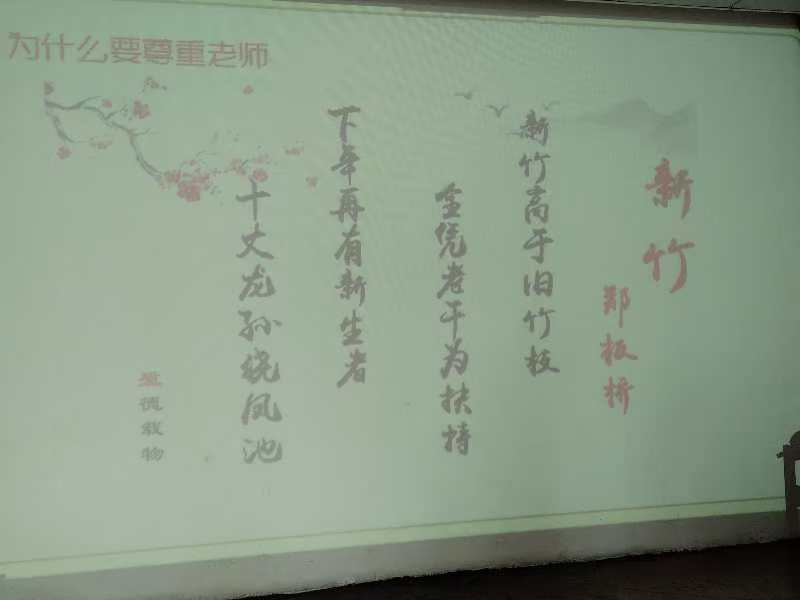 为什么要尊重老师
新竹
郑板桥
新竹高于旧竹枝
全凭老干为扶持
下年再有新生者
十丈龙孙绕凤池
厚德载物